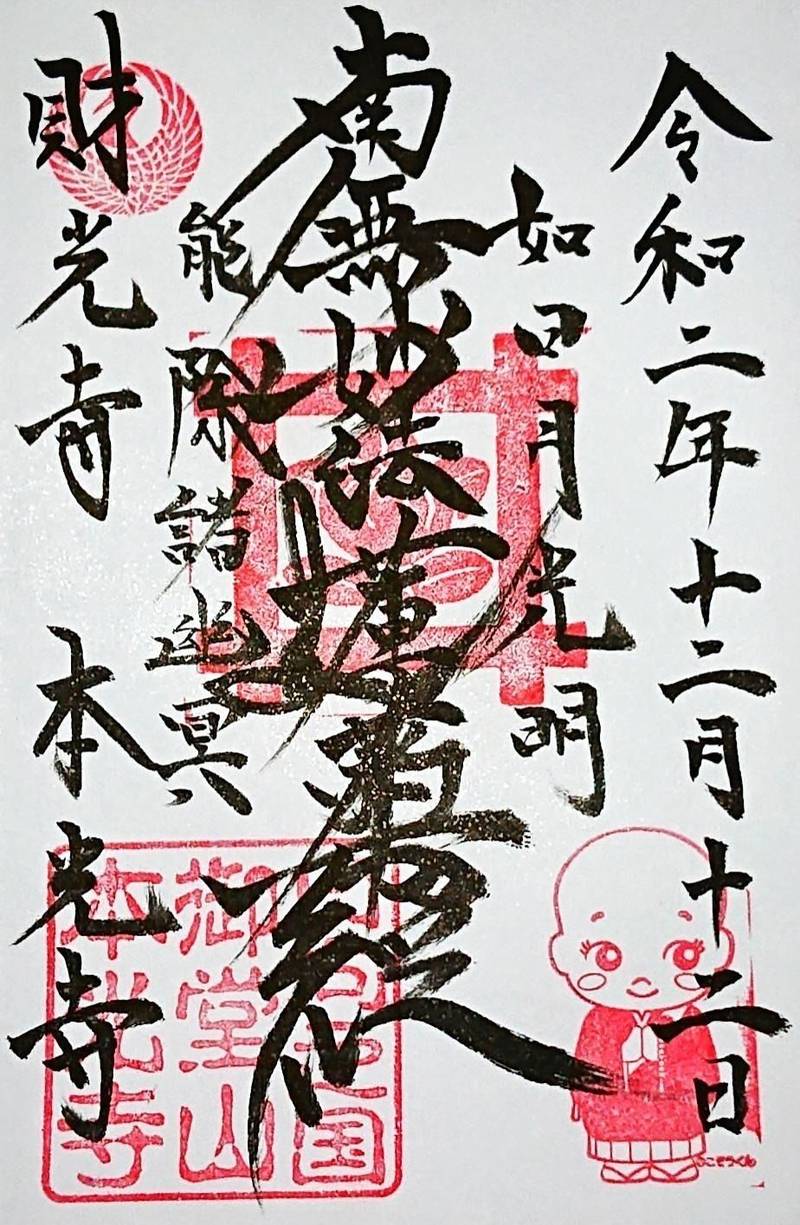 令和二年十二月十二日
如日月光明
南無妙法蓮華経
能除諸幽冥
財光寺 本光寺
御堂山
本光寺
こぞうくん